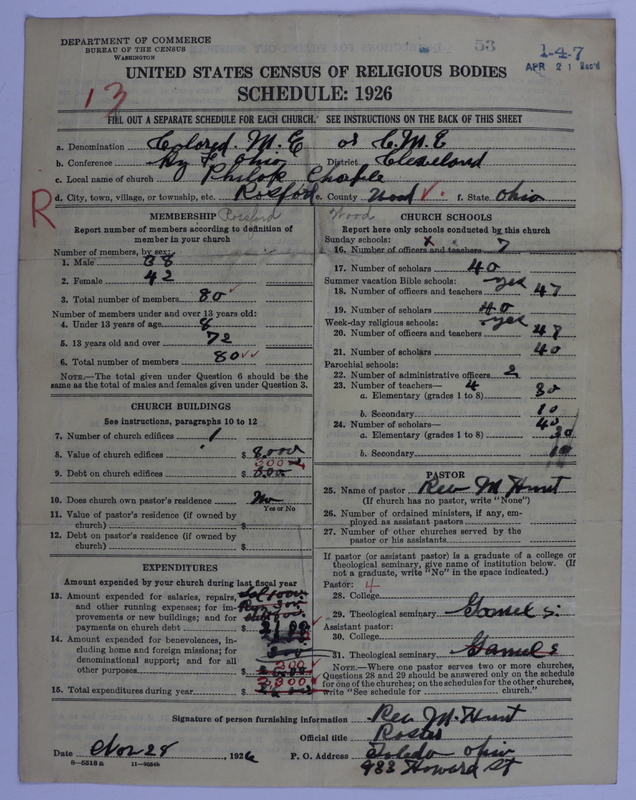 DEPARTMENT OF COMMERCE
BUREAU OF THE CENSUS
WASHINGTON
53
1-4-7
APR 21 Rec'd
UNITED STATES CENSUS OF RELIGIOUS BODIES
SCHEDULE: 1926
13
FILL OUT A SEPARATE SCHEDULE FOR EACH CHURCH. SEE INSTRUCTIONS ON THE BACK OF THIS SHEET
a. Denomination Colored. M. E or C. M. E
b. Conference Ohio District Cleveland
c. Local name of church Chaple
d. City, town, village, or township, etc. Rosford e. County Wood f. State Ohio
R
MEMBERSHIP Rossford Wood
Report number of members according to definition of
member in your church
Number of members, by sex:
1. Male 38
2. Female 42
3. Total number of members 80
Number of members under and over 13 years old:
4. Under 13 years of age 8
5. 13 years old and over 72
6. Total number of members 80
NOTE.—The total given under Question 6 should be the
same as the total of males and females given under Question 3.
CHURCH BUILDINGS
See instructions, paragraphs 10 to 12
7. Number of church edifices 1
8. Value of church edifices $ 8,000
9. Debt on church edifices $
10. Does church own pastor's residence No
Yes or No
11. Value of pastor's residence (if owned by
church) $
12. Debt on pastor's residence (if owned by
church) $
EXPENDITURES
Amount expended by your church during last fiscal year
13. Amount expended for salaries, repairs,
and other running expenses; for im-
provements or new buildings; and for
payments on church debt $
14. Amount expended for benevolences, in-
cluding home and foreign missions; for
denominational support; and for all
other purposes $ 200
15. Total expenditures during year $ 2,300
CHURCH SCHOOLS
Report here only schools conducted by this church
Sunday schools: x
16. Number of officers and teachers 7
17. Number of scholars 40
Summer vacation Bible schools: yes
18. Number of officers and teachers 47
19. Number of scholars 40
Week-day religious schools: yes
20. Number of officers and teachers 47
21. Number of scholars 40
Parochial schools:
22. Number of administrative officers 2
23. Number of teachers— 4
a. Elementary (grades 1 to 8) 30
b. Secondary 10
24. Number of scholars— 40
a. Elementary (grades 1 to 8) 30
b. Secondary 10
PASTOR
25. Name of pastor Rev M Hunt
(If church has no pastor, write "None")
26. Number of ordained ministers, if any, em-
ployed as assistant pastors
27. Number of other churches served by the
pastor or his assistants
If pastor (or assistant pastor) is a graduate of a college or
theological seminary, give name of institution below. (If
not a graduate, write "No" in the space indicated.)
Pastor: 4
28. College
29. Theological seminary
Assistant pastor:
30. College
31. Theological seminary
NOTE.—Where one pastor serves two or more churches,
Questions 28 and 29 should be answered only on the schedule
for one of the churches; on the schedules for the other churches,
write "See schedule for church."
Signature of person furnishing information Rev M. Hunt
Official title
Date Nov 28, 1926 P. O. Address Toledo Ohio
8-5518a 11-9554b 983 Howard St